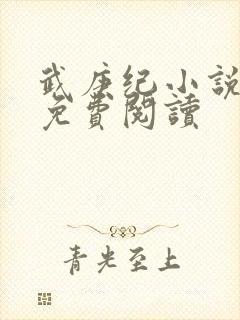 武庚纪小説
免費閱讀
青光至上